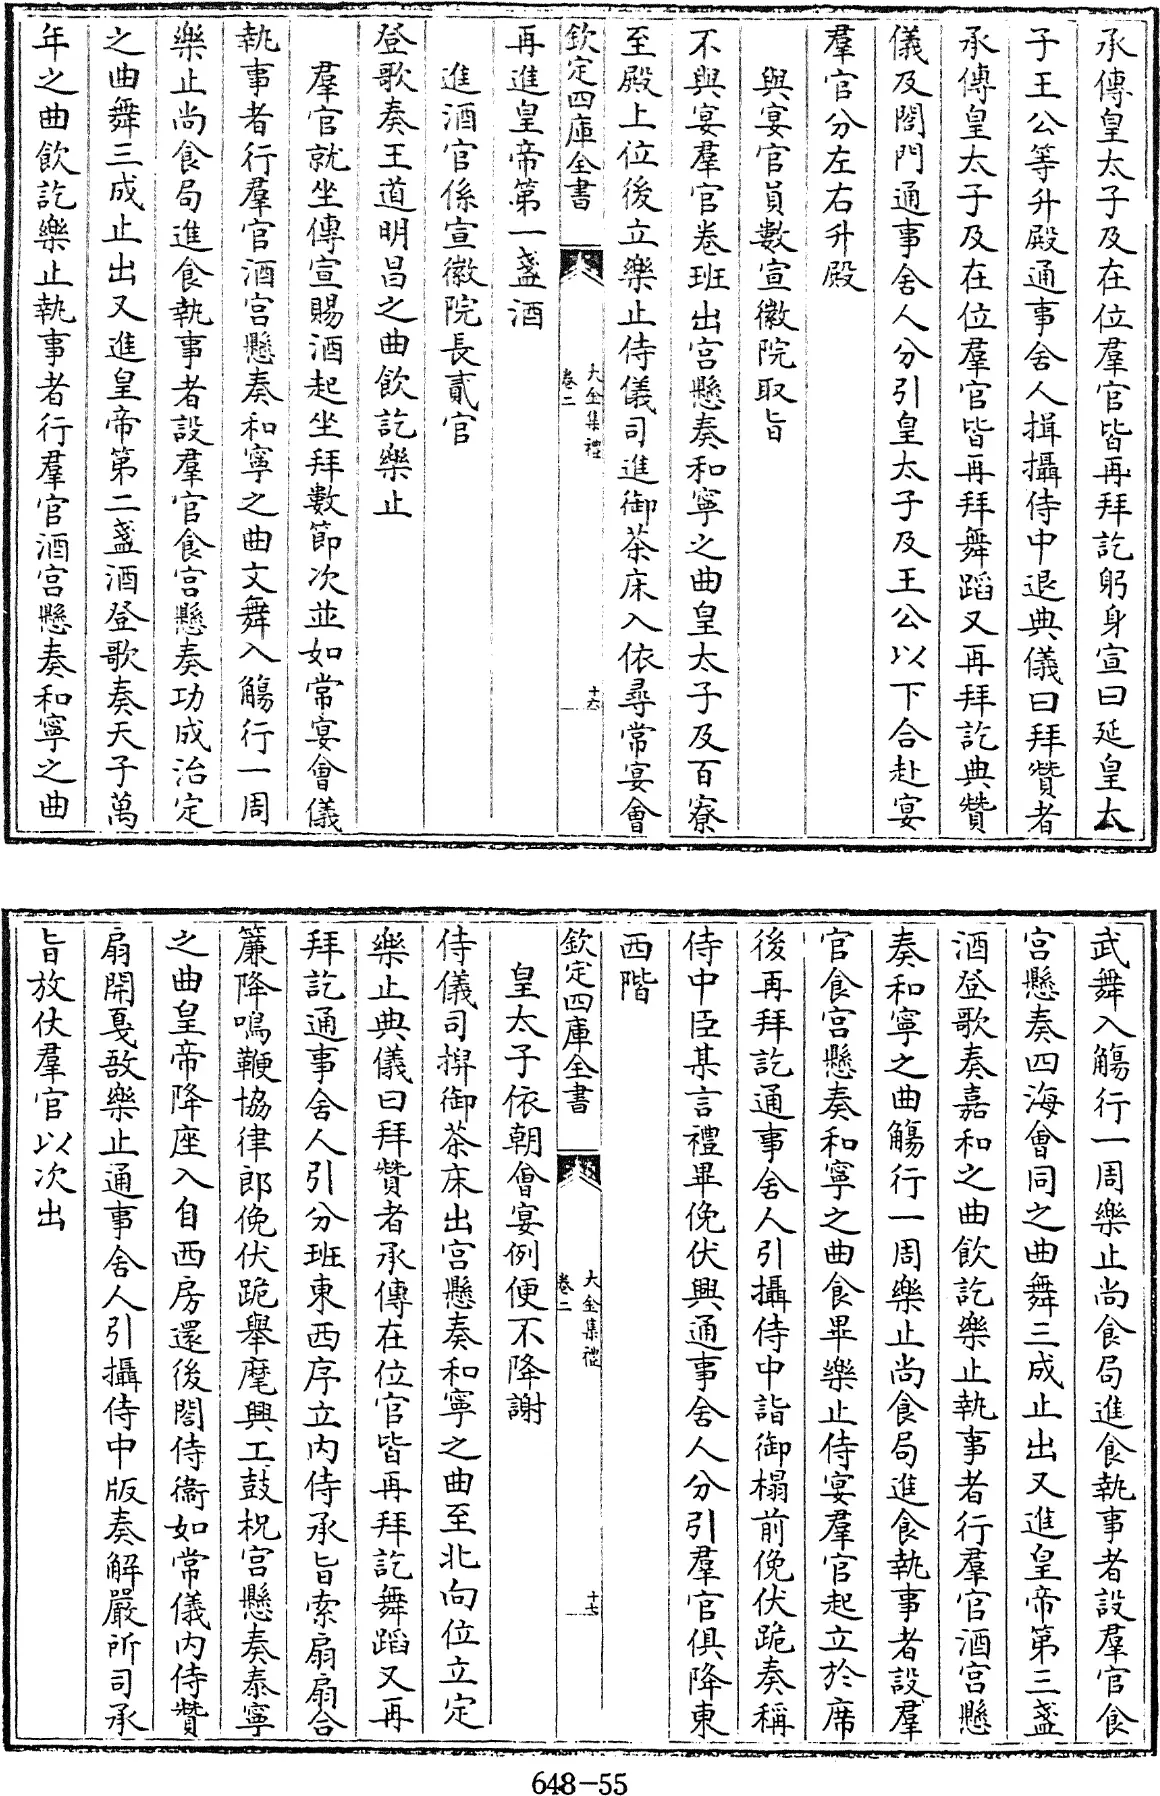 承傳皇太子及在位羣官皆再拜訖躬身宣曰延皇太
子王公等升殿通事舍人揖攝侍中退典儀曰拜贊者
承傳皇太子及在位羣官皆再拜舞蹈又再拜訖典贊
儀及閤門通事舍人分引皇太子及王公以下合赴宴
羣官分左右升殿
與宴官員數宣徽院取旨
不與宴羣官卷班出宮懸奏和寧之曲皇太子及百寮
至殿上位後立樂止侍儀司進御茶床入依尋常宴會
欽定四庫全書
大金集禮
卷二
十六
再進皇帝第一盞酒
進酒官係宣徽院長貳官
登歌奏王道明昌之曲飲訖樂止
羣官就坐傳宣賜酒起坐拜數節次並如常宴會儀
執事者行羣官酒宮懸奏和寧之曲文舞入觴行一周
樂止尚食局進食執事者設羣官食宮懸奏功成治定
之曲舞三成止出又進皇帝第二盞酒登歌奏天子萬
年之曲飲訖樂止執事者行羣官酒宮懸奏和寧之曲
武舞入觴行一周樂止尚食局進食執事者設羣官食
宮懸奏四海會同之曲舞三成止出又進皇帝第三盞
酒登歌奏嘉和之曲飲訖樂止執事者行羣官酒宮懸
奏和寧之曲觴行一周樂止尚食局進食執事者設羣
官食宮懸奏和寧之曲食畢樂止侍宴羣官起立於席
後再拜訖通事舍人引攝侍中詣御榻前俛伏跪奏稱
侍中臣某言禮畢俛伏興通事舍人分引羣官俱降東
西階
欽定四庫全書
大金集禮
卷二
十七
皇太子依朝會宴例便不降謝
侍儀司捭御茶床出宮懸奏和寧之曲至北向位立定
樂止典儀曰拜贊者承傳在位官皆再拜訖舞蹈又再
拜訖通事舍人引分班東西序立内侍承旨索扇扇合
簾降鳴鞭協律郎俛伏跪舉麾興工鼓柷宮懸奏泰寧
之曲皇帝降座入自西房還後閤侍衞如常儀内侍贊
扇開戞敔樂止通事舍人引攝侍中版奏解嚴所司承
旨放仗羣官以次出
648-55